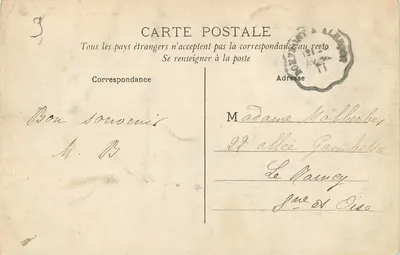 9
CARTE POSTALE
Tous les pays étrangers n'acceptent pas la correspondance au recto
Se renseigner à la poste
Correspondance
Adresse
Bon souvenir
M. B
Madame Malherbes
22 allée Gambetta
Le Raincy
Sne et Oise